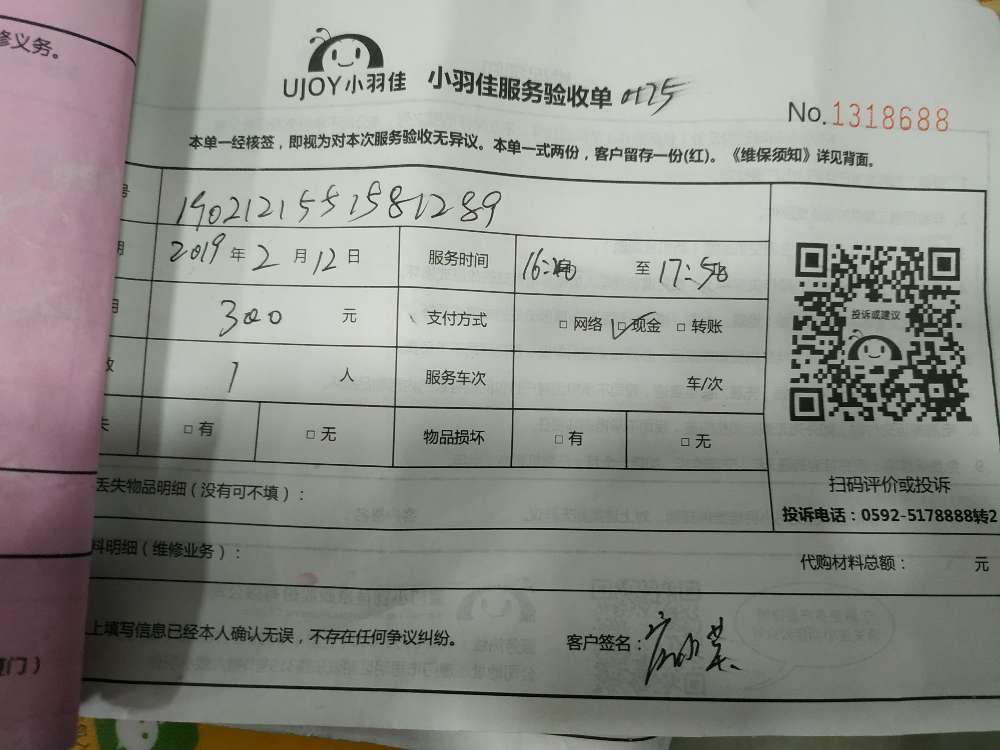 修义务。
UJOY小羽佳 小羽佳服务验收单 0175
No.1318688
本单一经核签，即视为对本次服务验收无异议。本单一式两份，客户留存一份(红)。《维保须知》详见背面。
号 1902121551581289
期 2019年2月12日 服务时间 16:20 至 17:50
用 300 元 支付方式 □ 网络 □ 现金 □ 转账
1 人 服务车次 车/次
失 □ 有 □ 无 物品损坏 □ 有 □ 无
投诉或建议
扫码评价或投诉
投诉电话：0592-5178888转2
丢失物品明细（没有可不填）：
料明细（维修业务）： 代购材料总额： 元
上填写信息已经本人确认无误，不存在任何争议纠纷。 客户签名：
门）